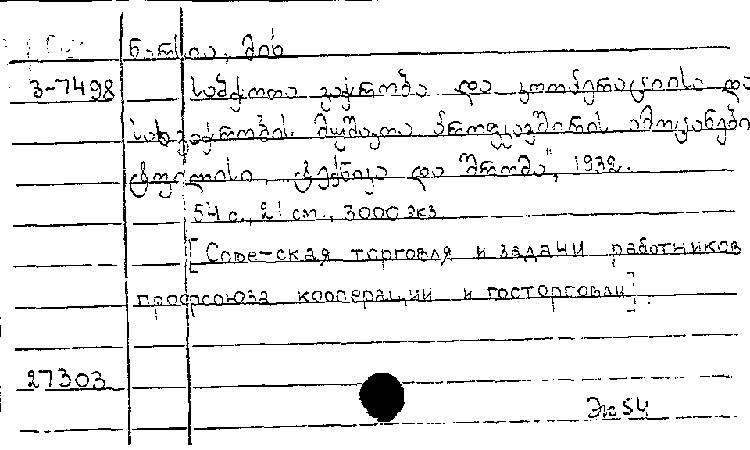 ნარსია, მიხ
3-7498 საბჭოთა ვაჭრობა და კოოპერაციისა და
სახვაჭრობის მუშაკთა პროფკავშირის ამოცანები
ტფილისი, „ტექნიკა და შრომა", 1932.
54 с., 21 см., 3000 экз
[Советская торговля и задачи работников
профсоюза кооперации и госторговли].
27303
Эк 54